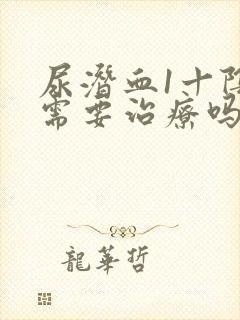 尿潜血1十阴
需要治疗吗
龍華哲